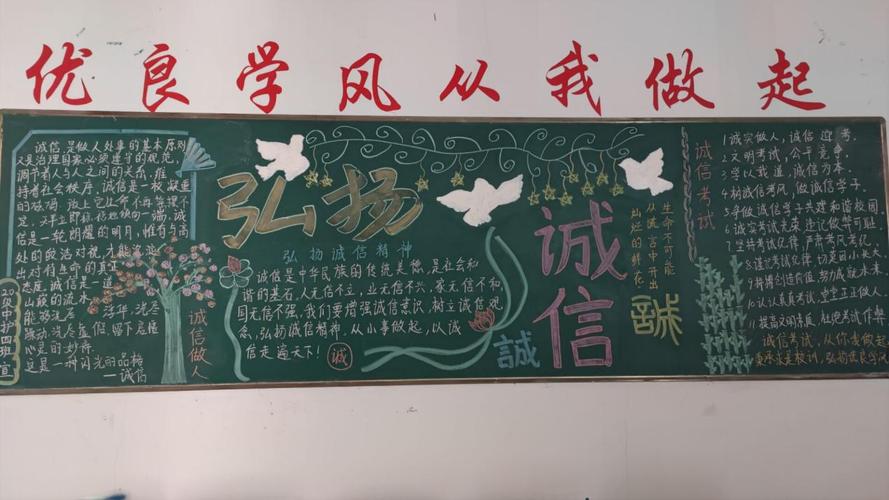 优良学风从我做起
诚信,是做人处事的基本原则
又是治理国家必须遵守的规范,
调节着人与人之间的关系,维
持着社会秩序,诚信是一枚凝重
的砝码,放上它生命不再摇摆不
定,天平立即稳稳地倾向一端,诚
信是一轮朗耀的明月,惟有与高
处的皎洁对视,才能沉淀
出对待生命的真
态度,诚信是一道
山巅的流水
能够洗尽浮华,洗尽
躁动,洗尽虚假,留下启悟
心灵的妙谛
这是一种闪光的品格
—诚信
护四班宣
诚信做人
弘扬
弘扬诚信精神
诚信是中华民族的传统美德,是社会和
谐的基石,人无信不立,业无信不兴,家无信不和
国无信不强,我们要增强诚信意识,树立诚信观
念,弘扬诚信精神,从小事做起,以诚
信走遍天下!
诚
誠
诚信
生命不可能
从谎言中开出
灿烂的鲜花
诚信考试
1诚实做人,诚信迎考
2文明考试,公平竞争
3学以载道,诚信为本
4树诚信考风,做诚信学子
5争做诚信学子共建和谐校园
6诚实考试光荣违纪做弊可耻
7坚持考试纪律,严肃考风考纪
8谨记考试纪律,
9拼搏创造价值,努力成就未来
10认认真真考试,堂堂正正做人
11提高文明素质,杜绝考试作弊
诚信考试,从你我做起